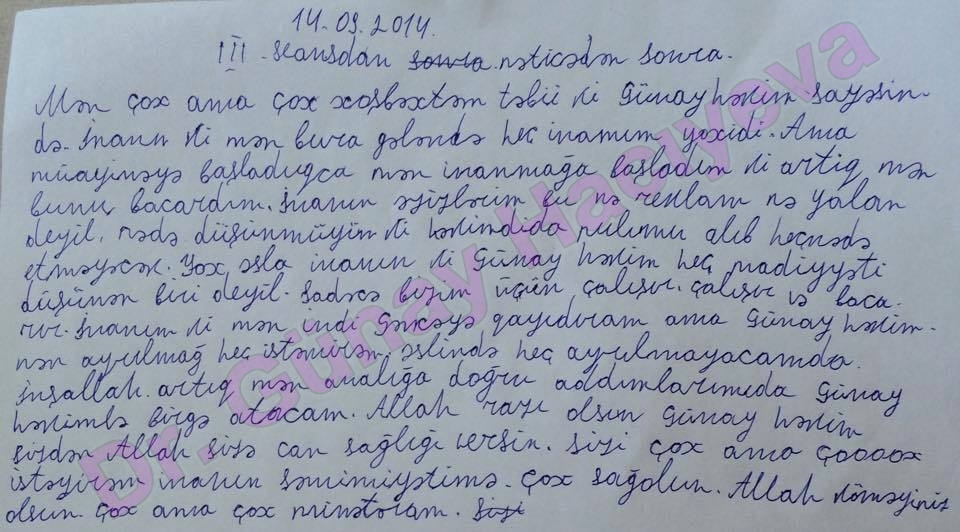 14.09.2014.
III - seansdan sonra nəticədən sonra.
Mən çox ama çox xoşbəxtəm təbii ki Günay həkim sayəsin-
də. İnanın ki mən bura gələndə heç inamım yoxidi. Ama
müayinəyə başladıqca mən inanmağa başladım ki artıq mən
bunu bacardım. İnanın əzizlərim bu nə reklam nə yalan
deyil. nədə düşünmüyün ki həkimdida pulumu alıb heçnədə
etməyəcək. Yox əsla inanın ki Günay həkim heç madiyyəti
düşünən biri deyil. Sadəcə bizim üçün çalışır. çalışır və baca-
rır. İnanın ki mən indi Gəncəyə qayıdıram ama Günay həkim-
nən ayrılmağ heç istəmirəm. əslində heç ayrılmayacamda.
İnşallah artıq mən analığa doğru addımlarımıda Günay
həkimlə birgə atacam. Allah razı olsun Günay həkim
sizdən Allah sizə can sağlığı versin. Sizi çox ama çooox
istəyirəm inanın səmimiyətimə. Çox sağolun. Allah köməyiniz
olsun. Çox ama çox minətdaram. Sizi
Dr. Günay Haciyeva